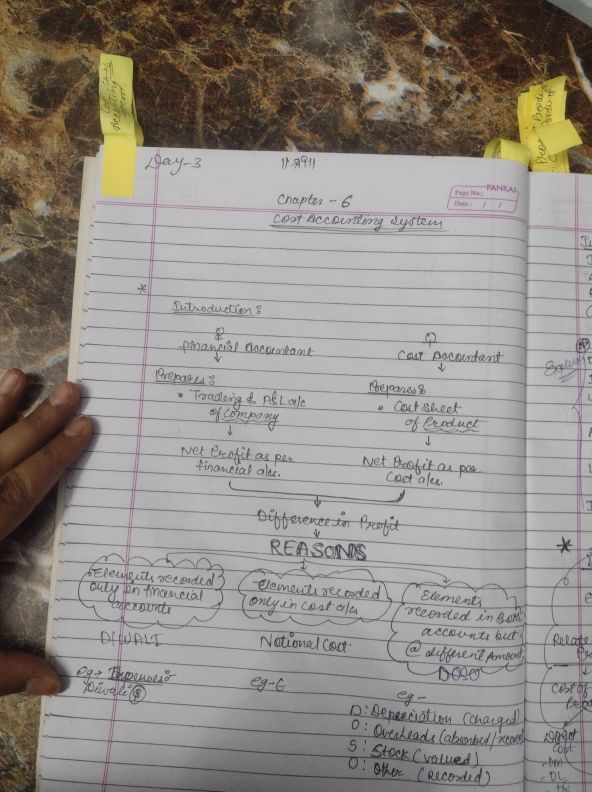 Day-3
PANKAJ
Page No.:
Date: / /
Chapter - 6
Cost Accounting System
*
Introduction:
Financial Accountant
Cost Accountant
Prepares:
Prepares:
• Trading & P&L a/c
of Company
• Cost Sheet
of Product
Net Profit as per
financial a/cs.
Net Profit as per
Cost a/cs.
Difference in Profit
REASONS
Elements recorded
only in financial
accounts
Elements recorded
only in cost a/cs
Elements
recorded in Both
accounts but
@ different Amount
DIWALI
Notional Cost
DOSO
eg → Expenses:-
Diwali
eg-
eg-
D: Depreciation (charged)
O: Overheads (absorbed/
S: Stock (valued)
O: Other (Recorded)
*
Relate
Cost of
Direct
Cost
- DM
- DL